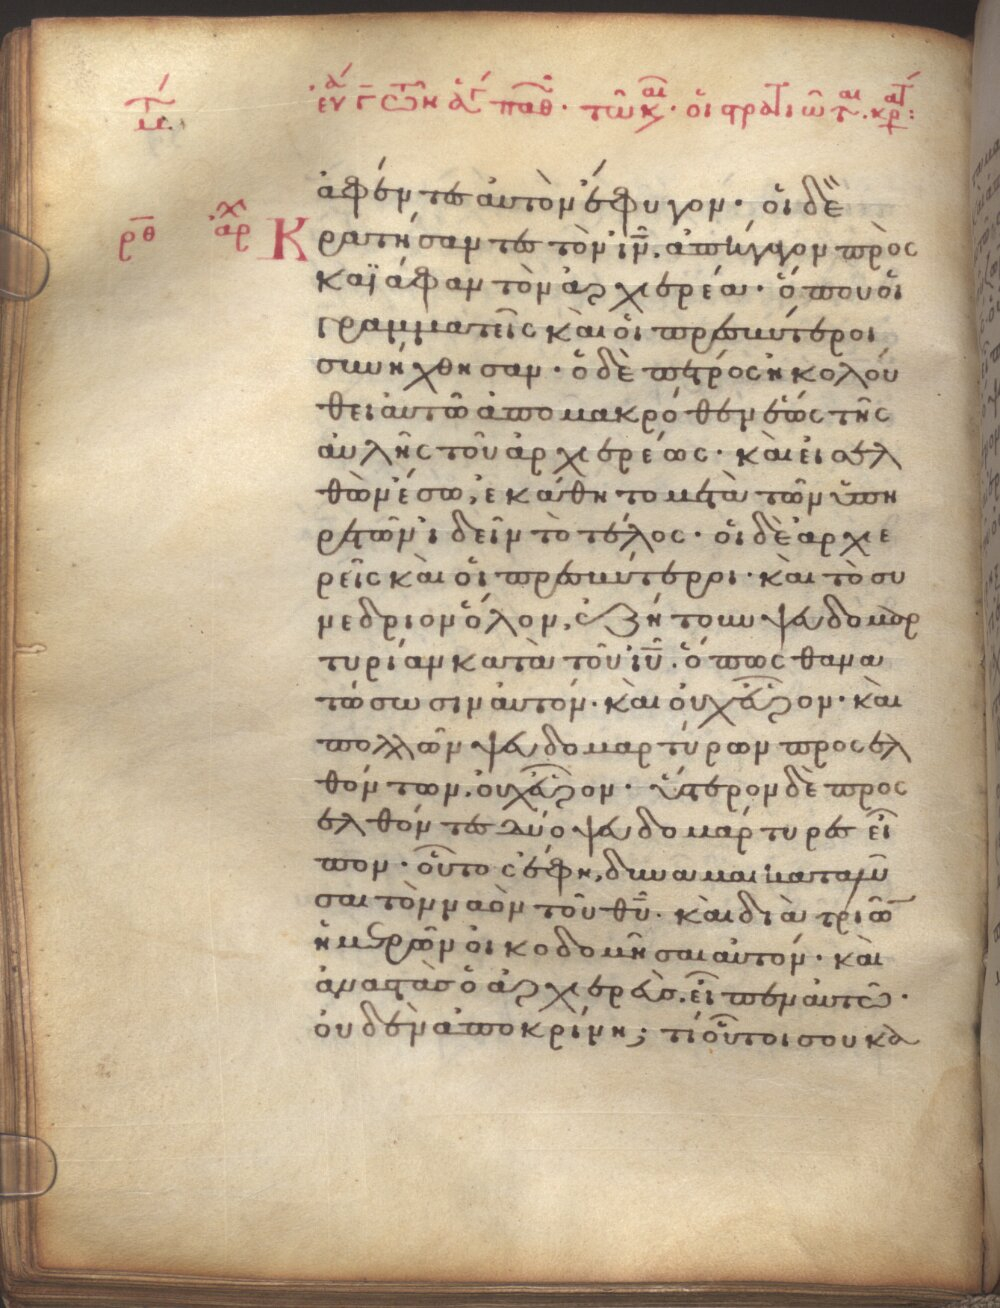 ἀφέντες ἀυτὸν ἔφυγον· ὁι δὲ
ρθ ἀρχ Κρατήσαντες τὸν ἰν̅. ἀπήγαγον πρὸς
καϊάφαν τὸν ἀρχιερέα· ὅπου ὁι
γραμματεῖς κὰι ὁι πρεσβύτεροι
συνήχθησαν· ὁ δὲ πέτρος ἠκολού
θει ἀυτῶ ἀπο μακρόθεν ἕως τῆς
ἀυλῆς τοῦ ἀρχιερέως· κὰι εἰσελ
θὼν ἔσω, ἐκάθητο μετὰ τῶν ὑπη
ρετῶν ἰδεῖν τὸ τέλος· ὁι δὲ ἀρχιε
ρεῖς κὰι ὁι πρεσβύτεροι· κὰι τὸ συ
νέδριον ὅλον, ἐζήτουν ψευδομαρ
τυρίαν κατὰ τοῦ ἰυ̅. ὅπως θανα
τώσωσιν ἀυτόν· κὰι ὀυχ εὗρον· κὰι
πολλῶν ψευδομαρτύρων προσελ
θόντων. ὀυχ εὗρον· ὕστερον δὲ προσ
ελθόντες δύο ψευδομάρτυρες εἶ
πον· οὗτος ἔφη, δύναμαι καταλῦ
σαι τὸν ναὸν τοῦ θυ̅· κὰι διὰ τριῶν
ἡμερῶν ὀικοδομῆσαι ἀυτόν· κὰι
ἀναστὰς ὁ ἀρχιερεὺς. εἶπεν ἀυτῶ·
ὀυδὲν ἀποκρίνη; τί οὗτοι σου κα